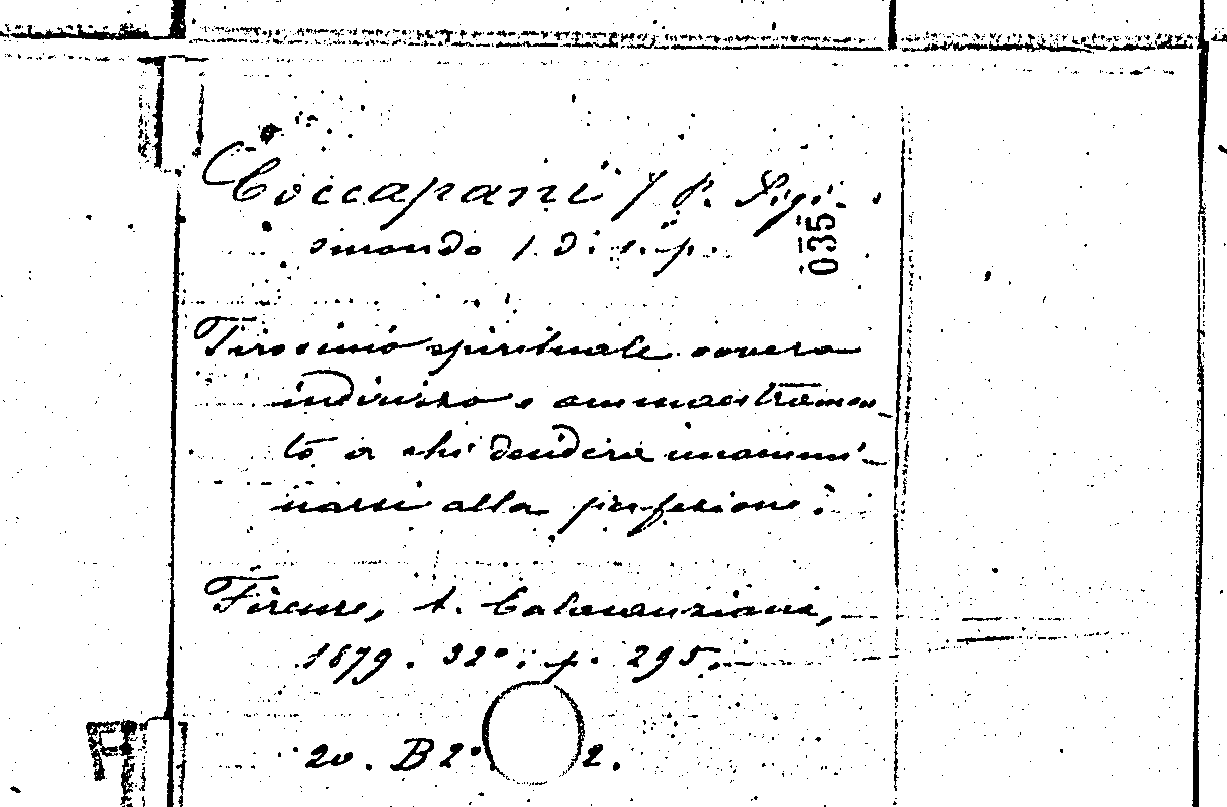 Coccapani / P. Sigi-
smondo / d. s. p.
035
Tirocinio spirituale ovvero
indirizzo e ammaestramen-
to a chi desidera incammi-
narsi alla perfezione.
Firenze, t. Calasanziana,
1879. 32°. p. 295.
20. B 2° 2.